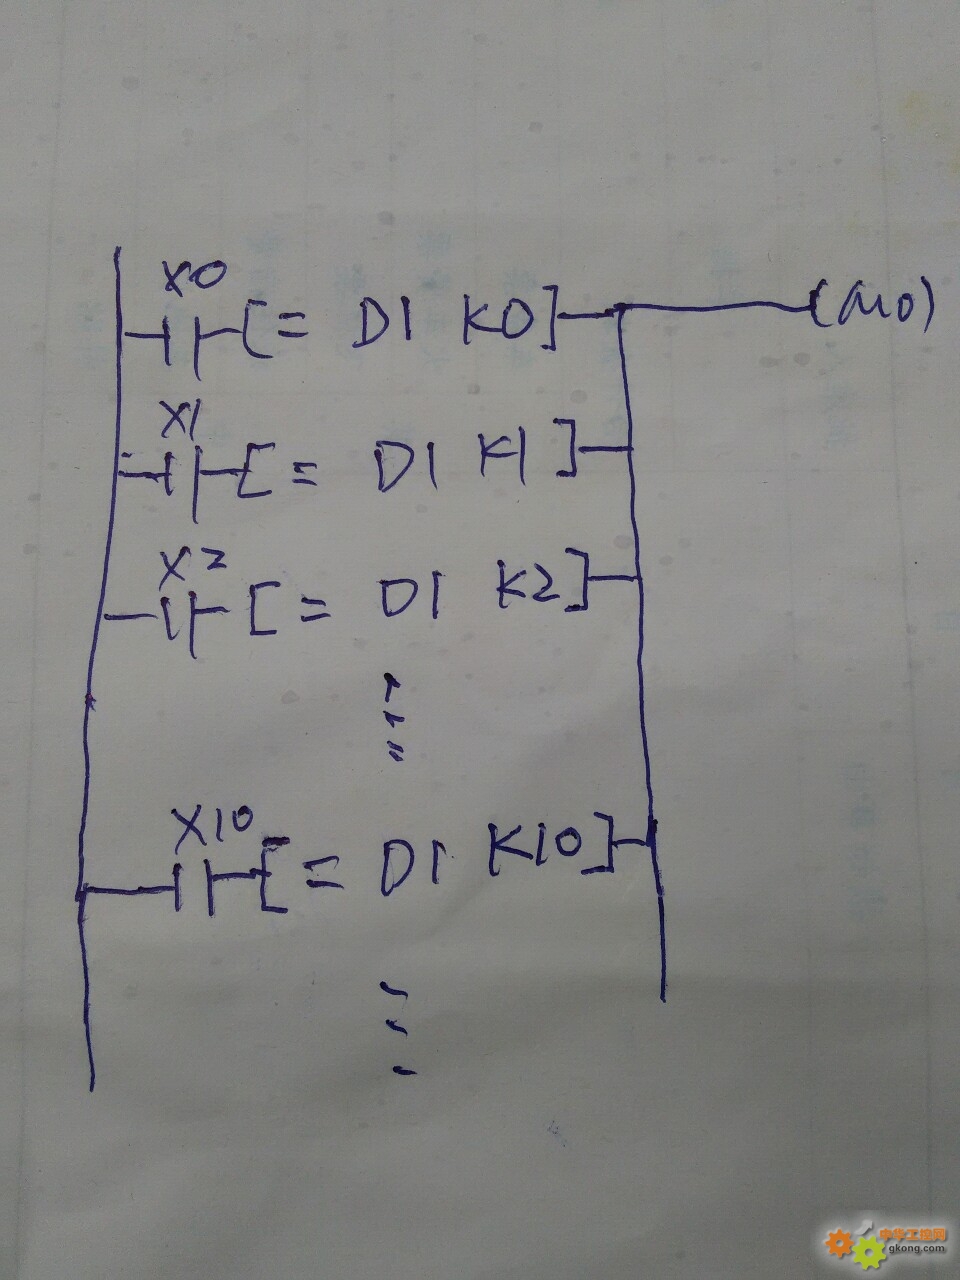 X0
[= D1 K0] (M0)
X1
[= D1 K1]
X2
[= D1 K2]
X10
[= D1 K10]
中华工控网
gkong.com